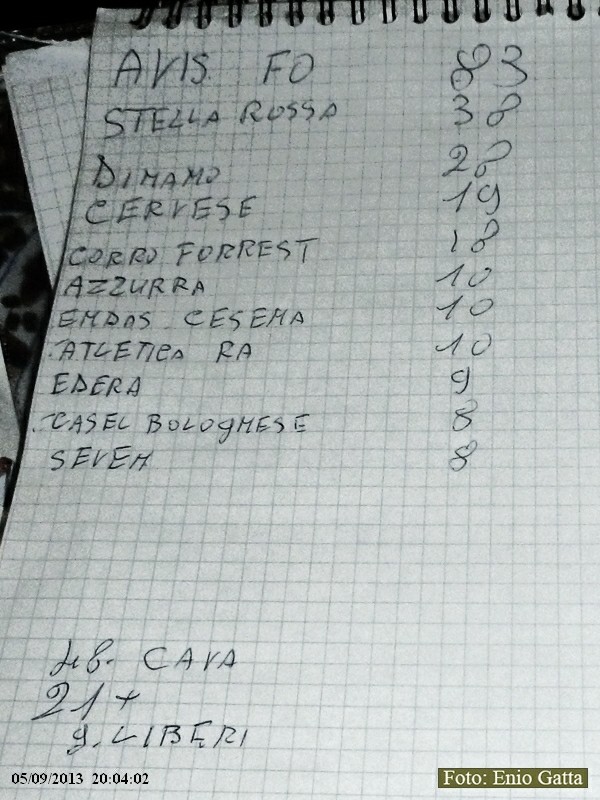 AVIS FO 83
STELLA ROSSA 38
DINAMO 28
CERVESE 19
CORRO FORREST 18
AZZURRA 10
ENDAS CESENA 10
ATLETICA RA 10
EDERA 9
CASEL BOLOGNESE 8
SEVEN 8
CAVA
21+
g. LIBERI
05/09/2013 20:04:02
Foto: Enio Gatta